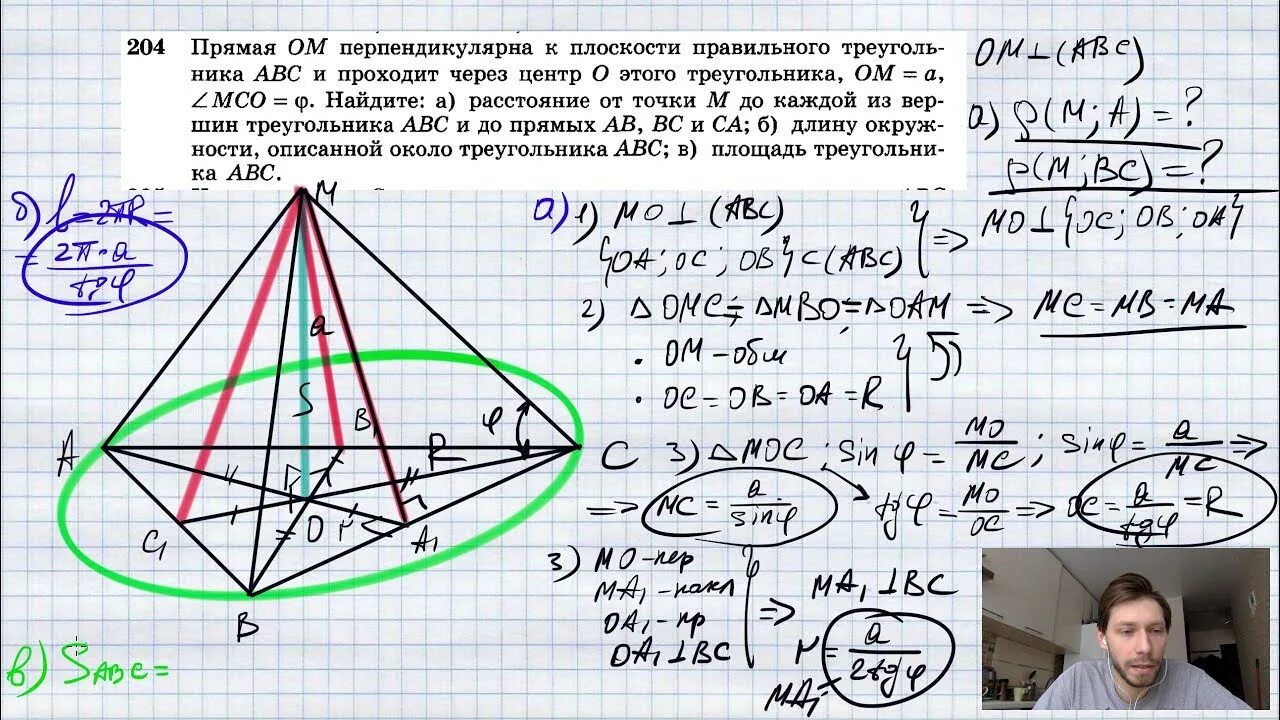 204 Прямая ОМ перпендикулярна к плоскости правильного треуголь-
ника ABC и проходит через центр О этого треугольника, ОМ = а,
∠MCO = φ. Найдите: а) расстояние от точки М до каждой из вер-
шин треугольника ABC и до прямых AB, BC и CA; б) длину окруж-
ности, описанной около треугольника ABC; в) площадь треугольни-
ка ABC.
OM⊥(ABC)
а) ρ(M; A) = ?
ρ(M; BC) = ?
б) l = 2πR =
= 2π·a / tgφ
M
a
S
B₁
R
φ
A
C
C₁
O
r
A₁
B
а) 1) MO⊥(ABC)
{OA; OC; OB}⊂(ABC) } =>
MO⊥{OC; OB; OA}
2) ΔOMC = ΔMBO = ΔOAM => MC = MB = MA
• OM – общ
• OC = OB = OA = R
3) ΔMOC; sin φ = MO/MC; sin φ = a/MC =>
=> MC = a/sinφ
tgφ = MO/OC => OC = a/tgφ = R
3) MO – пер
MA₁ – накл
OA₁ – пр
OA₁⊥BC
=> MA₁⊥BC
r = a/2tgφ
MA₁ =
в) S ABC =